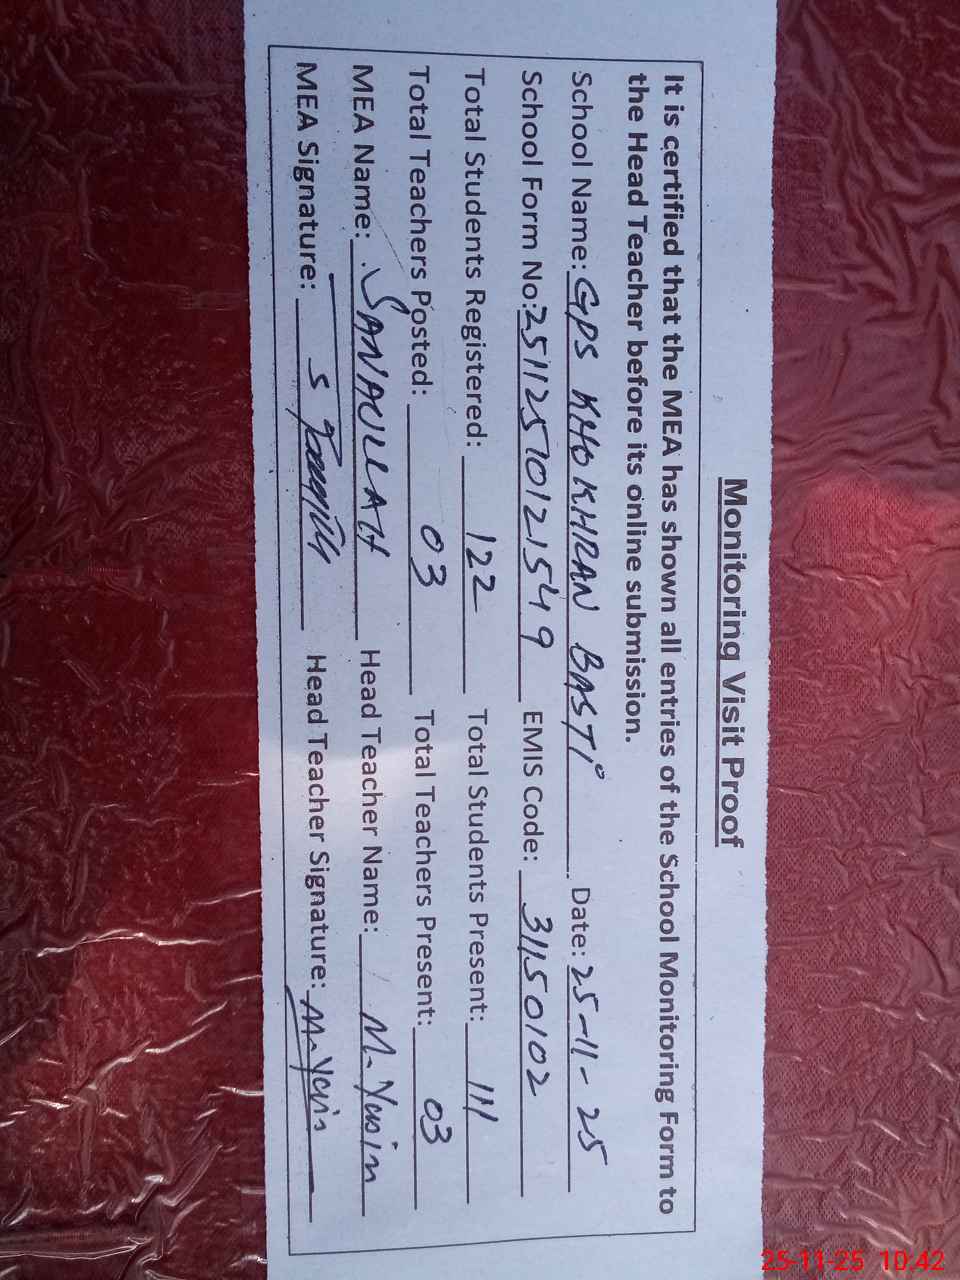 Monitoring Visit Proof
It is certified that the MEA has shown all entries of the School Monitoring Form to
the Head Teacher before its online submission.
School Name: GPS KHOKHRAN BASTI Date: 25-11-25
School Form No: 25112570121549 EMIS Code: 31150102
Total Students Registered: 122 Total Students Present: 111
Total Teachers Posted: 03 Total Teachers Present: 03
MEA Name: SANAULLAH Head Teacher Name: M. Yasin
MEA Signature: Head Teacher Signature: M. Yasin
25-11-25 10:42